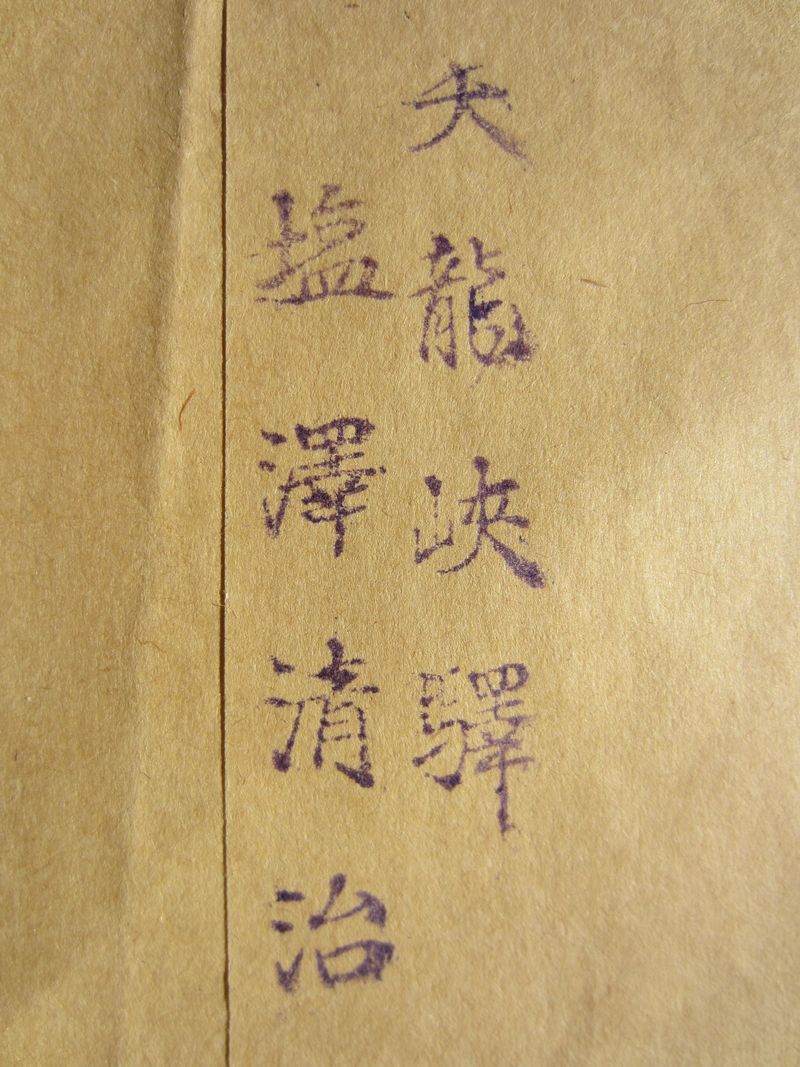 天龍峽驛
塩澤清治